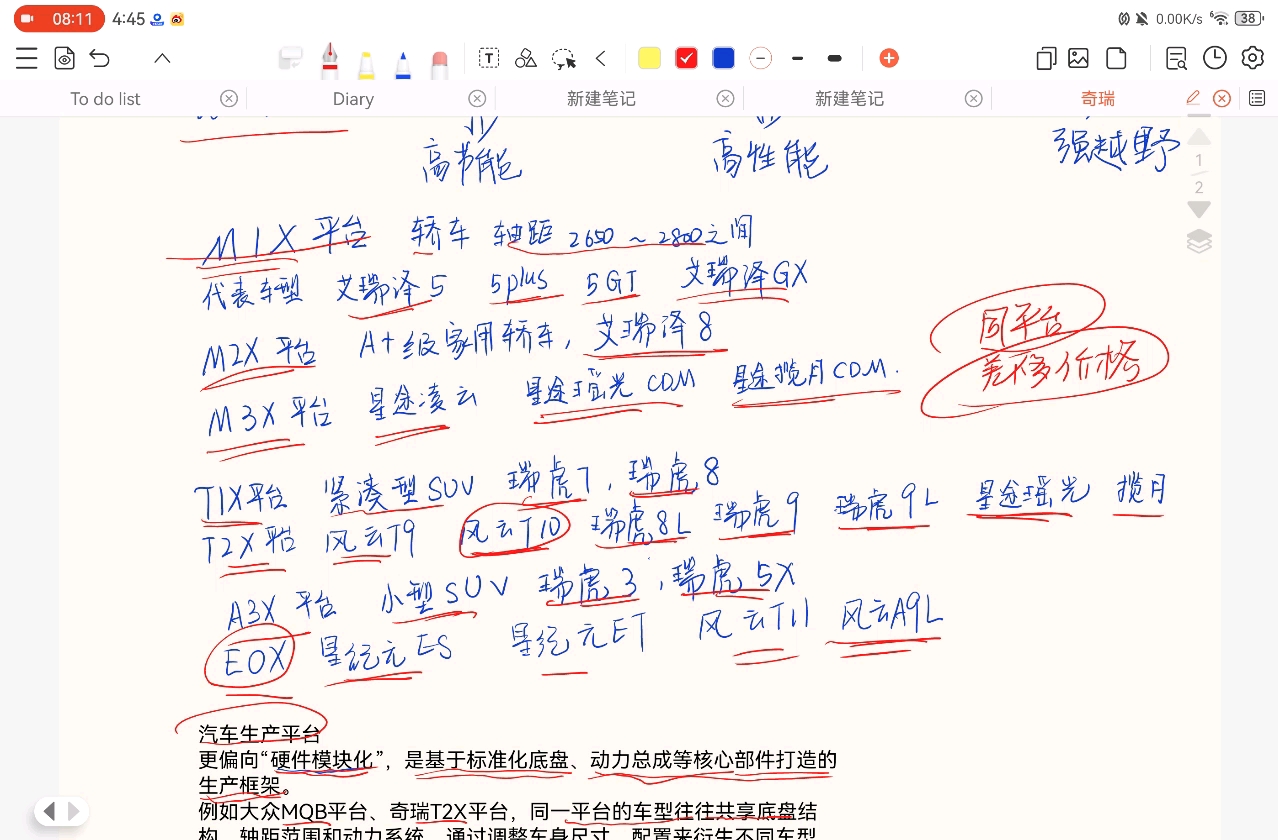 08:11 4:45 0.00K/s 38
To do list Diary 新建笔记 新建笔记 奇瑞
高节能 高性能 强越野
1
2
M1X平台 轿车 轴距 2650～2800之间
代表车型 艾瑞泽5 5plus 5GT 艾瑞泽GX
M2X平台 A+级家用轿车，艾瑞泽8
同平台
差不多价格
M3X平台 星途凌云 星途瑶光CDM 星途揽月CDM.
T1X平台 紧凑型SUV 瑞虎7，瑞虎8
T2X平台 风云T9 风云T10 瑞虎8L 瑞虎9 瑞虎9L 星途瑶光 揽月
A3X平台 小型SUV 瑞虎3，瑞虎5X
EOX 星纪元ES 星纪元ET 风云T11 风云A9L
汽车生产平台
更偏向“硬件模块化”，是基于标准化底盘、动力总成等核心部件打造的
生产框架。
例如大众MQB平台、奇瑞T2X平台，同一平台的车型往往共享底盘结
构、轴距范围和动力系统，通过调整车身尺寸、配置来衍生不同车型